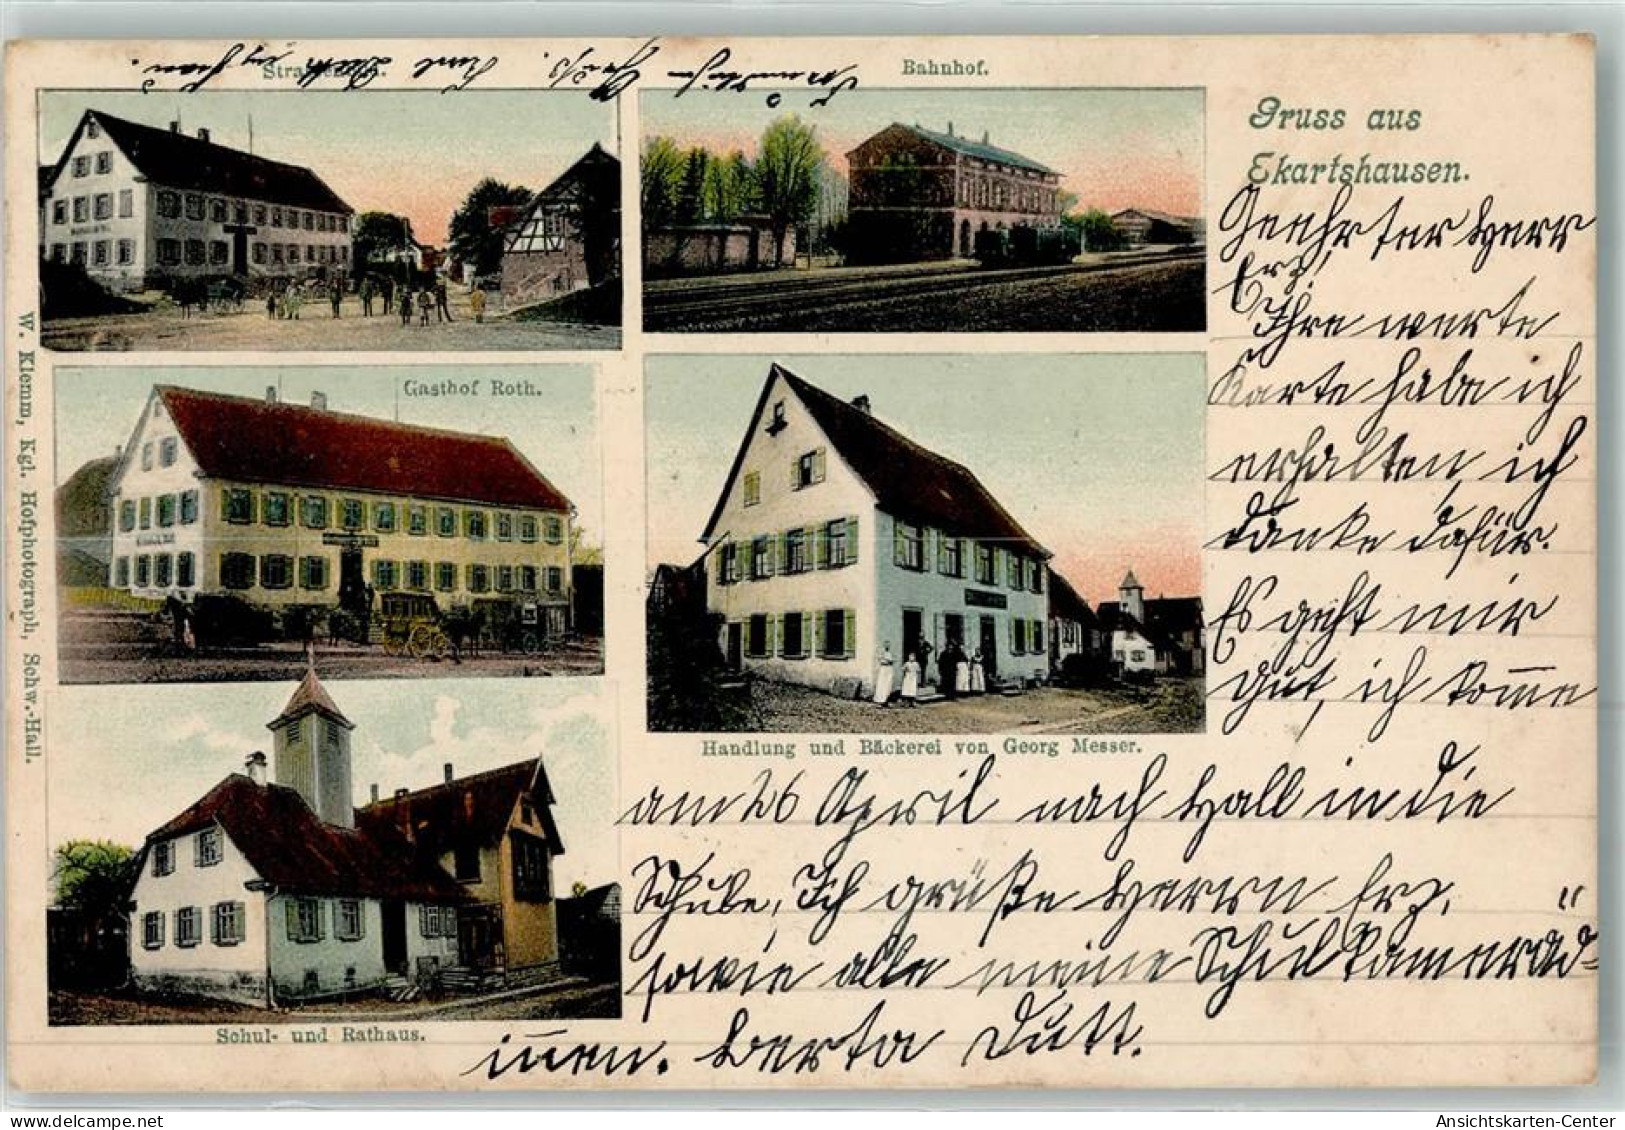 Bahnhof.
Gruss aus
Ekartshausen.
Gasthof Roth.
Handlung und Bäckerei von Georg Messer.
Schul- und Rathaus.
W. Klemm, Kgl. Hofphotograph, Schw.-Hall.
Geehrter Herr
Erz,
Ihre werte
Karte habe ich
erhalten, ich
danke dafür.
Es geht mir
gut, ich komme
am 26 April nach Hall in die
Schule, Ich grüße Herrn Erz,
sowie alle meine Schulkameräd-
innen. Berta Dutt.
Ansichtskarten-Center